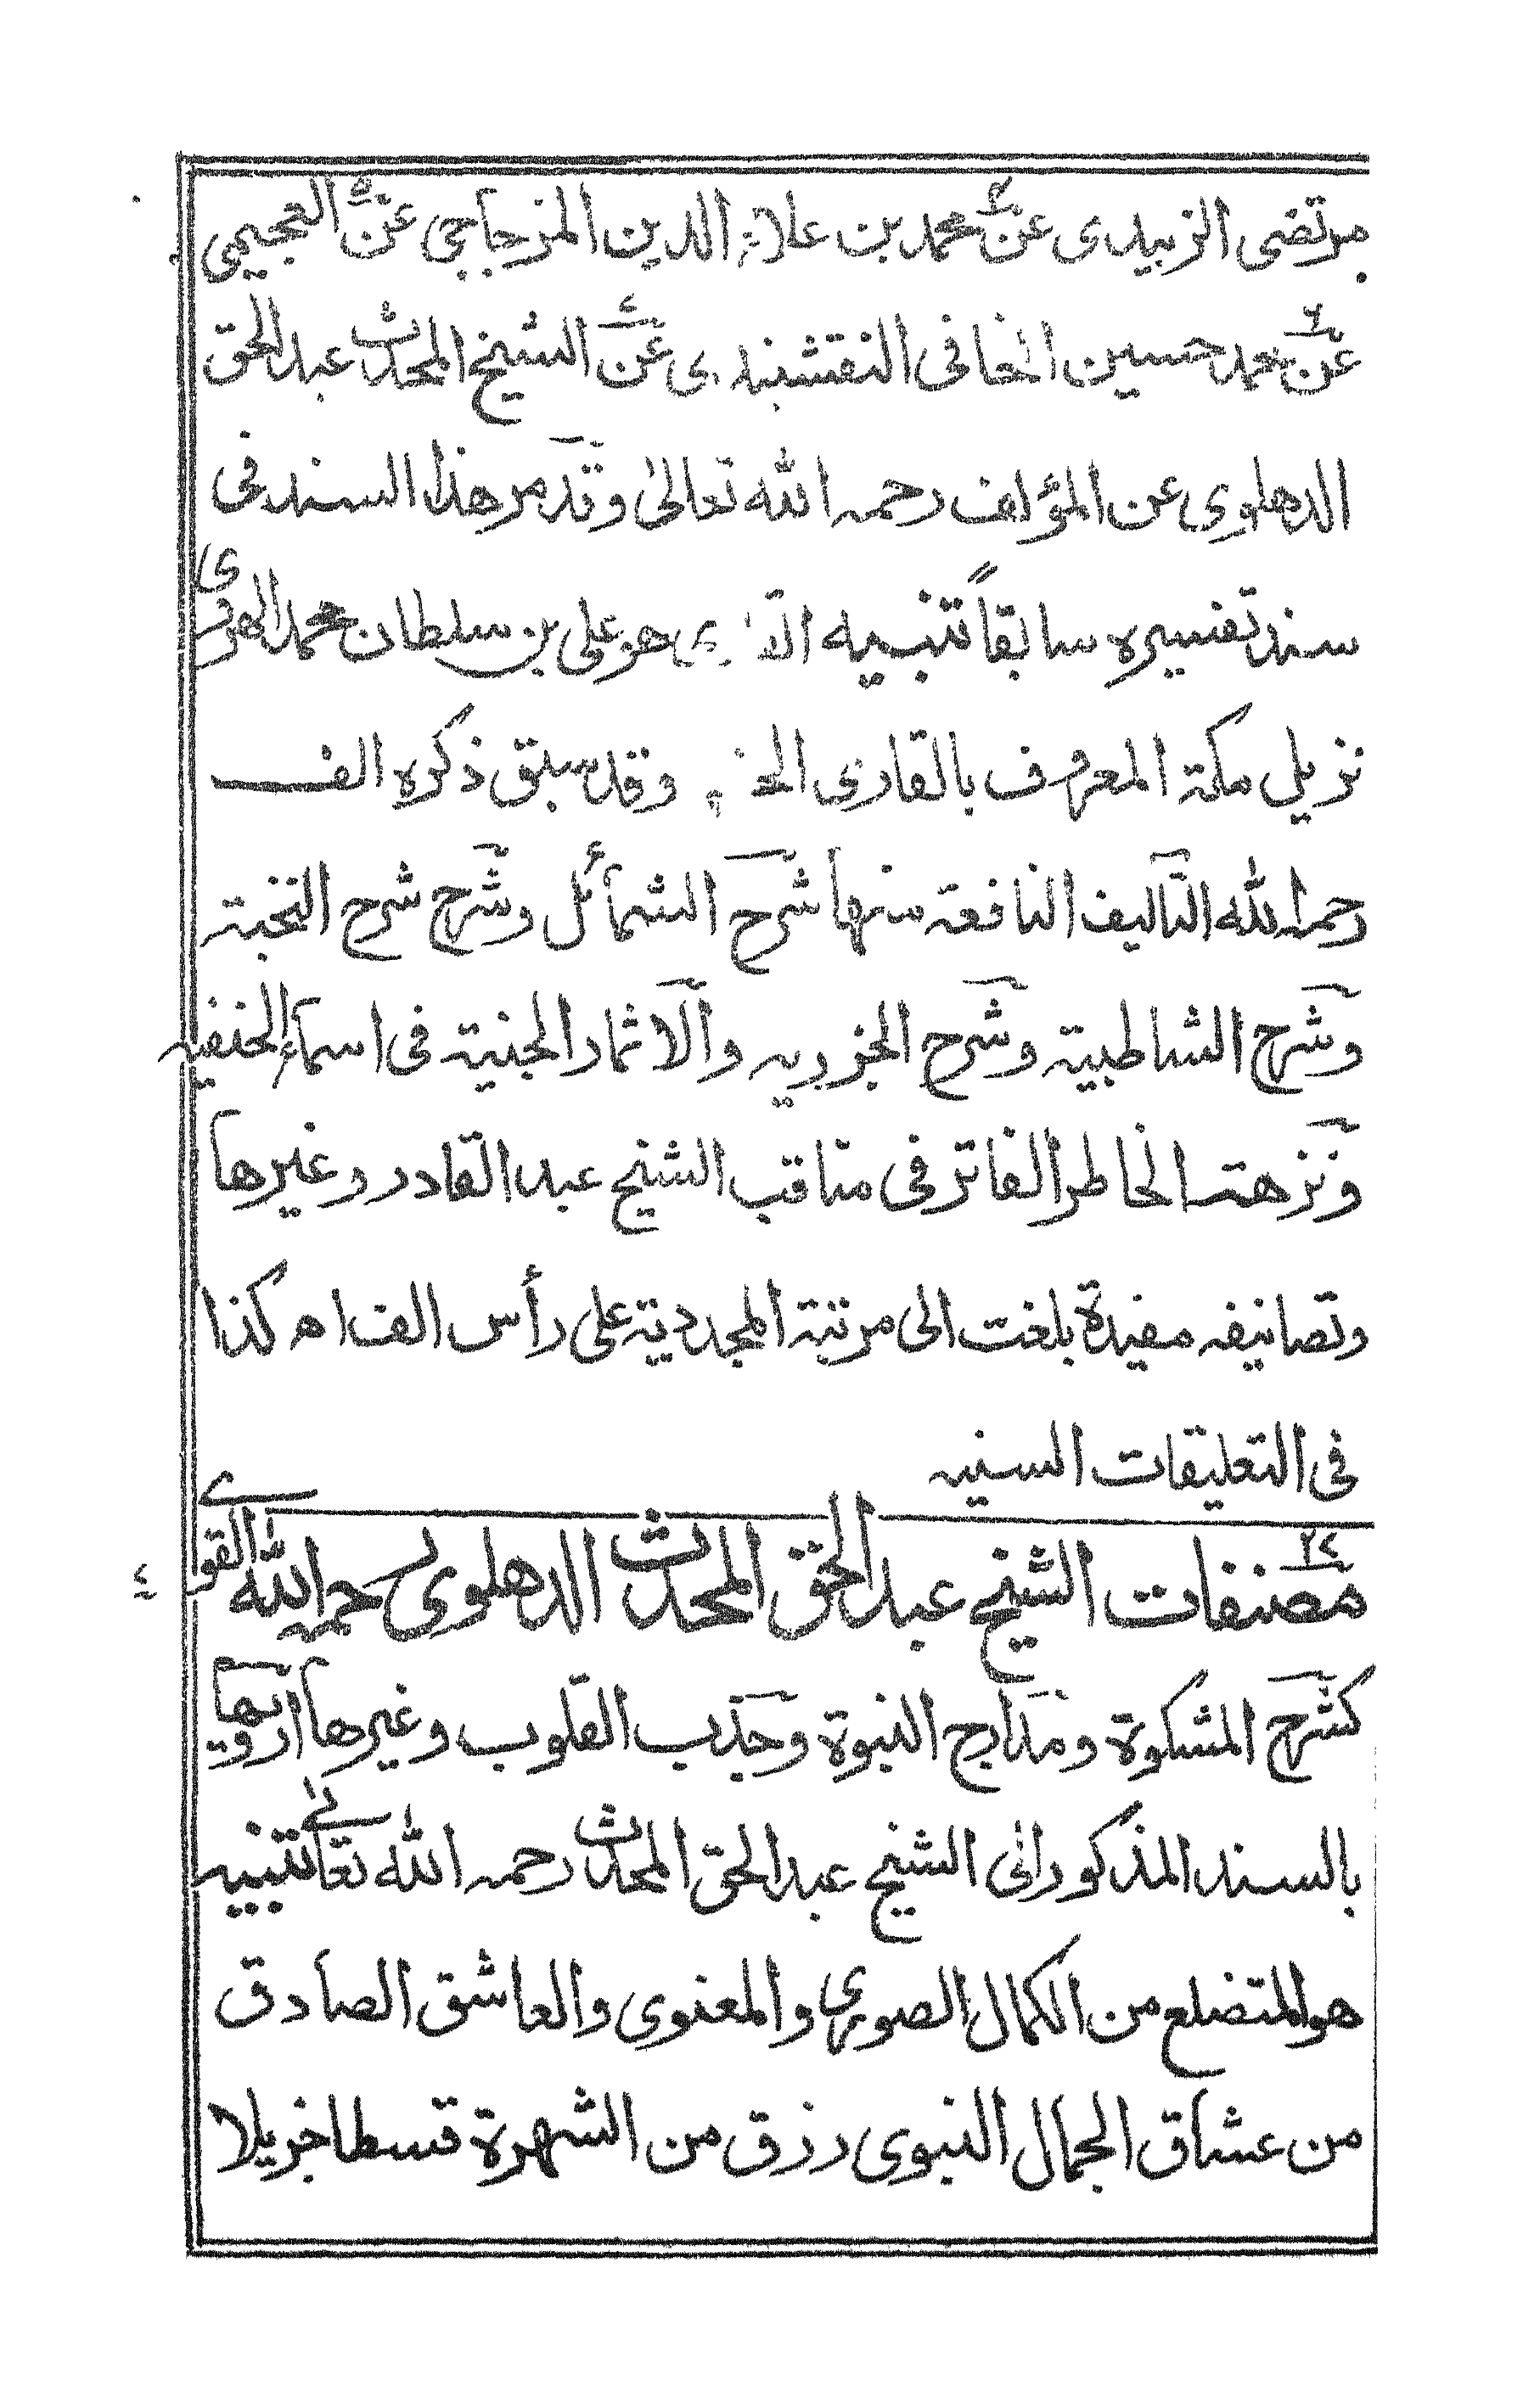 مرتضى الزبيدى عن محمد بن علاء الدين المزجاجي عن العجيمي
عن محمد حسين الخافى النقشبندى عن الشيخ المحدث عبد الحق
الدهلوى عن المؤلف رحمه الله تعالىٰ وقد مر هذا السند فى
سند تفسيره سابقاً تنبيه هو على بن سلطان محمد الهروى
نزيل مكة المعروف بالقارى وقد سبق ذكره الف
رحمه الله التآليف النافعة منها شرح الشمائل وشرح شرح النخبة
وشرح الشاطبية وشرح الجزرية والاثمار الجنية فى اسماء الحنفيه
ونزهة الخاطر الفاتر فى مناقب الشيخ عبد القادر وغيرها
وتصانيفه مفيدة بلغت الى مرتبة المجددية على رأس الف اه كذا
فى التعليقات السنيه
٢٤ مصنفات الشيخ عبد الحق المحدث الدهلوى رحمه الله القوى
كشرح المشكوة ومدارج النبوة وجذب القلوب وغيرها ارويها
بالسند المذكور الى الشيخ عبد الحق المحدث رحمه الله تعالىٰ تنبيه
هو المتضلع من الكمال الصورى والمعنوى والعاشق الصادق
من عشاق الجمال النبوى رزق من الشهرة قسطا جزيلا